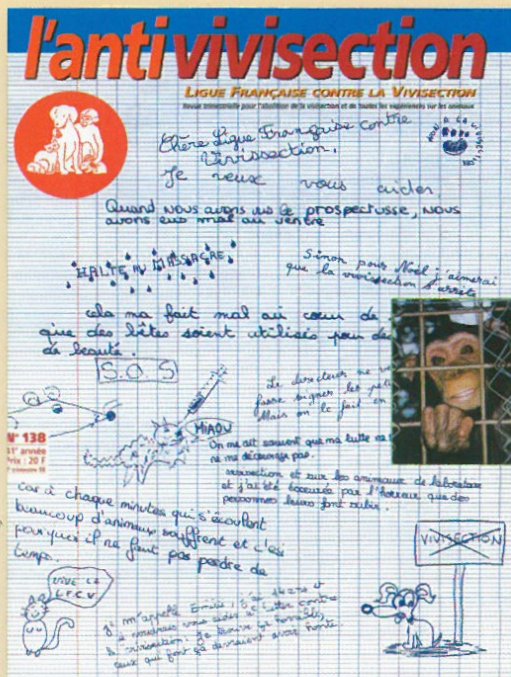 l'antivivisection
LIGUE FRANÇAISE CONTRE LA VIVISECTION
Revue trimestrielle pour l'abolition de la vivisection et de toutes les expériences sur les animaux
Chère Ligue Française contre
Vivissection,
Je veux vous aider,
Quand nous avons vus le prospectusse, nous
avons eus mal au ventre
HALTE AU MASSACRE!
Sinon pour Noël j'aimerai
que la vivisection s'arrête
cela ma fait mal au cœur de
que des bêtes soient utilisés pour de
de beauté.
S.O.S
Le directeur ne
faire signer les
Mais on le fait en
MIAOU
N° 138
41e année
Prix : 20 F
On me dit souvent que ma lutte ne
ne me décourage pas.
vivisection et sur les animaux de laboratoire
et j'ai été par l'horreur que des
personnes leurs font subir.
car à chaque minutes qui s'écoulent
beaucoup d'animaux souffrent et c'est
pourquoi il ne faut pas perdre de
temps.
VIVISECTION
VIVE LA
L.F.C.V
Je m'appelle Emilie, j'ai 14 ans et
je voudrais vous aider à lutter contre
la vivisection: je trouve ça horrible,
ceux qui font ça devraient avoir honte.